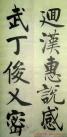 迴漢惠說感
武丁俊乂密